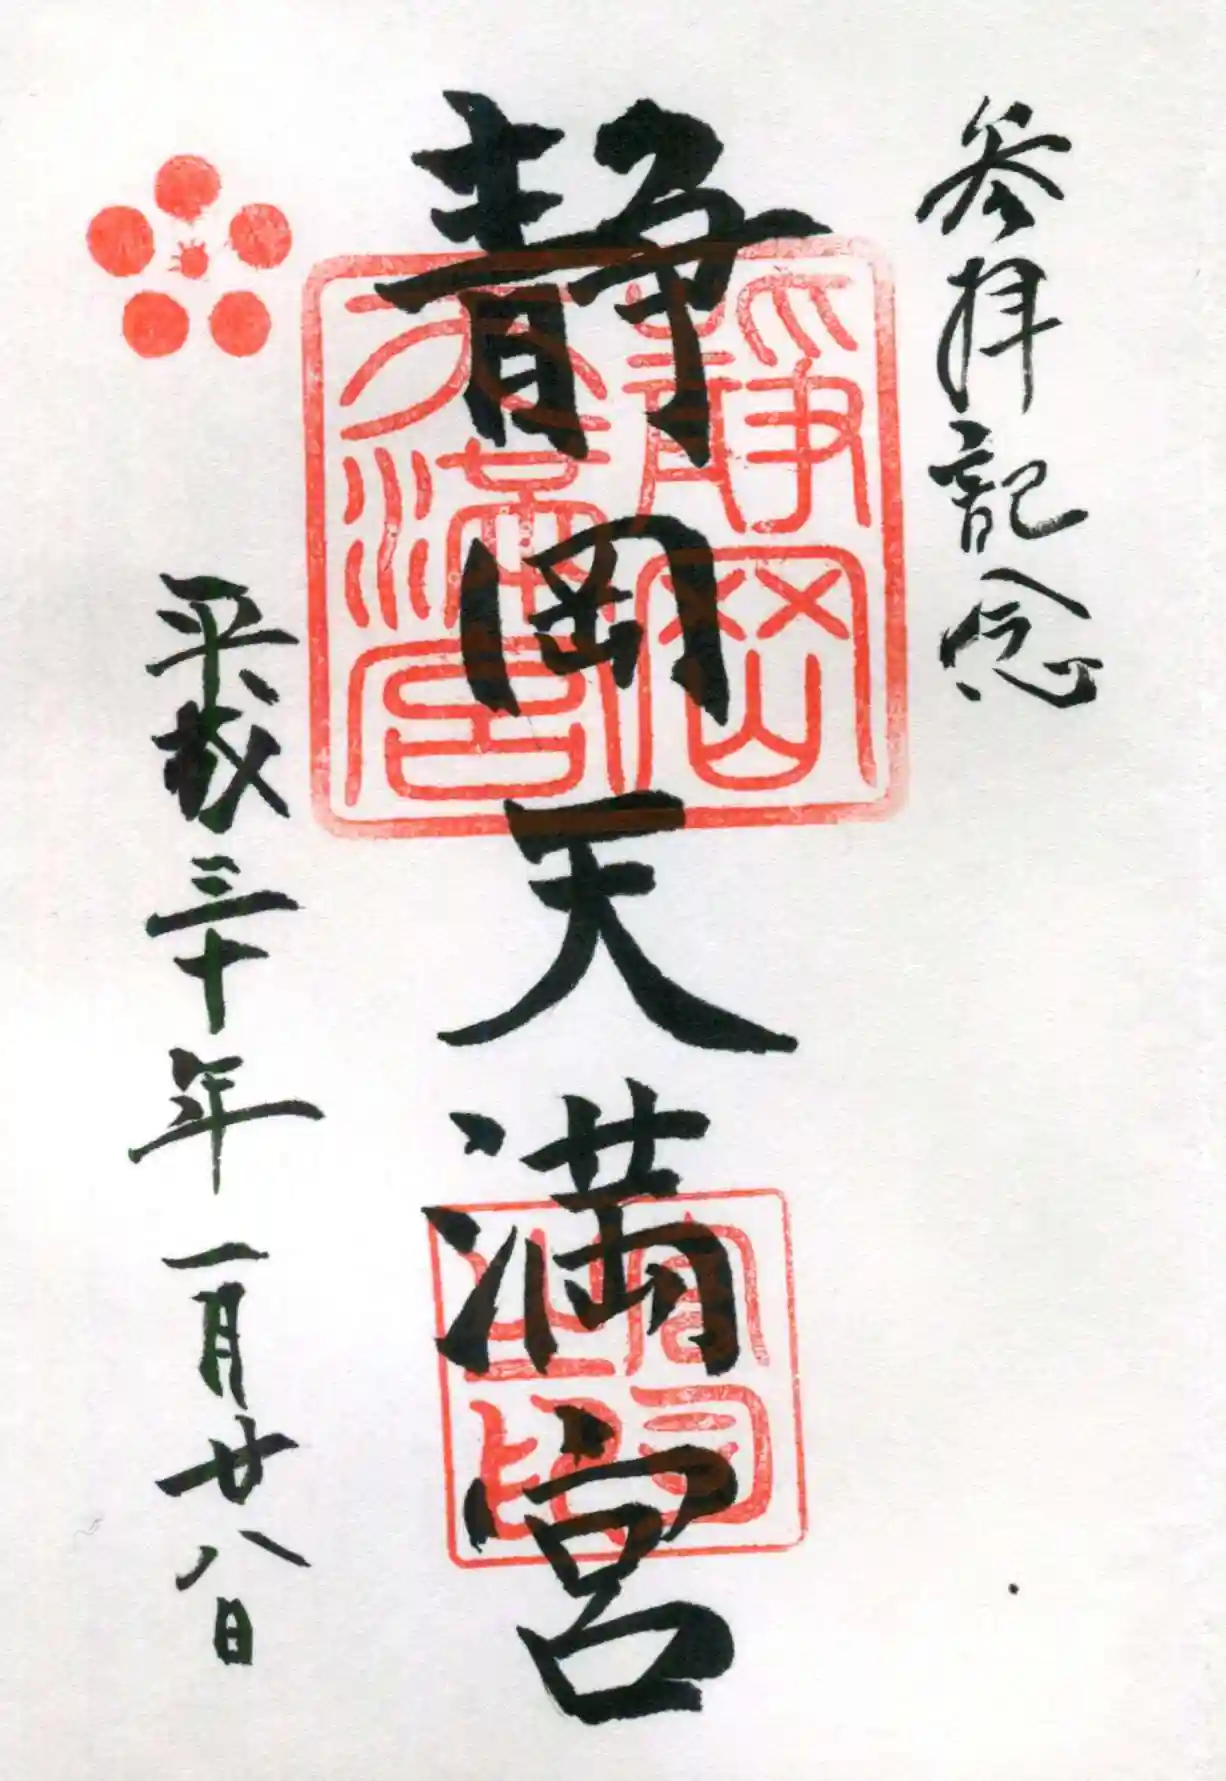 参拝記念
静岡天満宮
靜岡
天満宮
宮司
之印
平成三十年一月廿八日